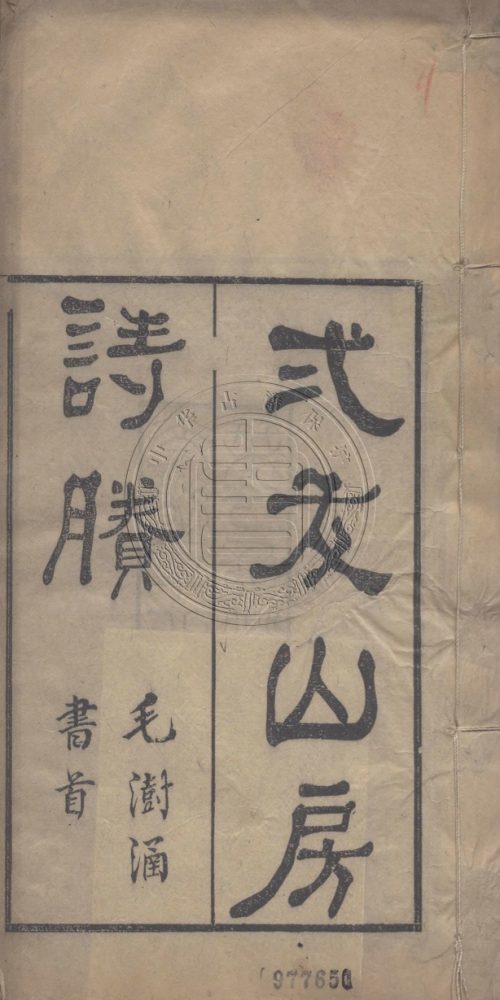 弍友山房
詩賸
毛澍涵
書首
977650